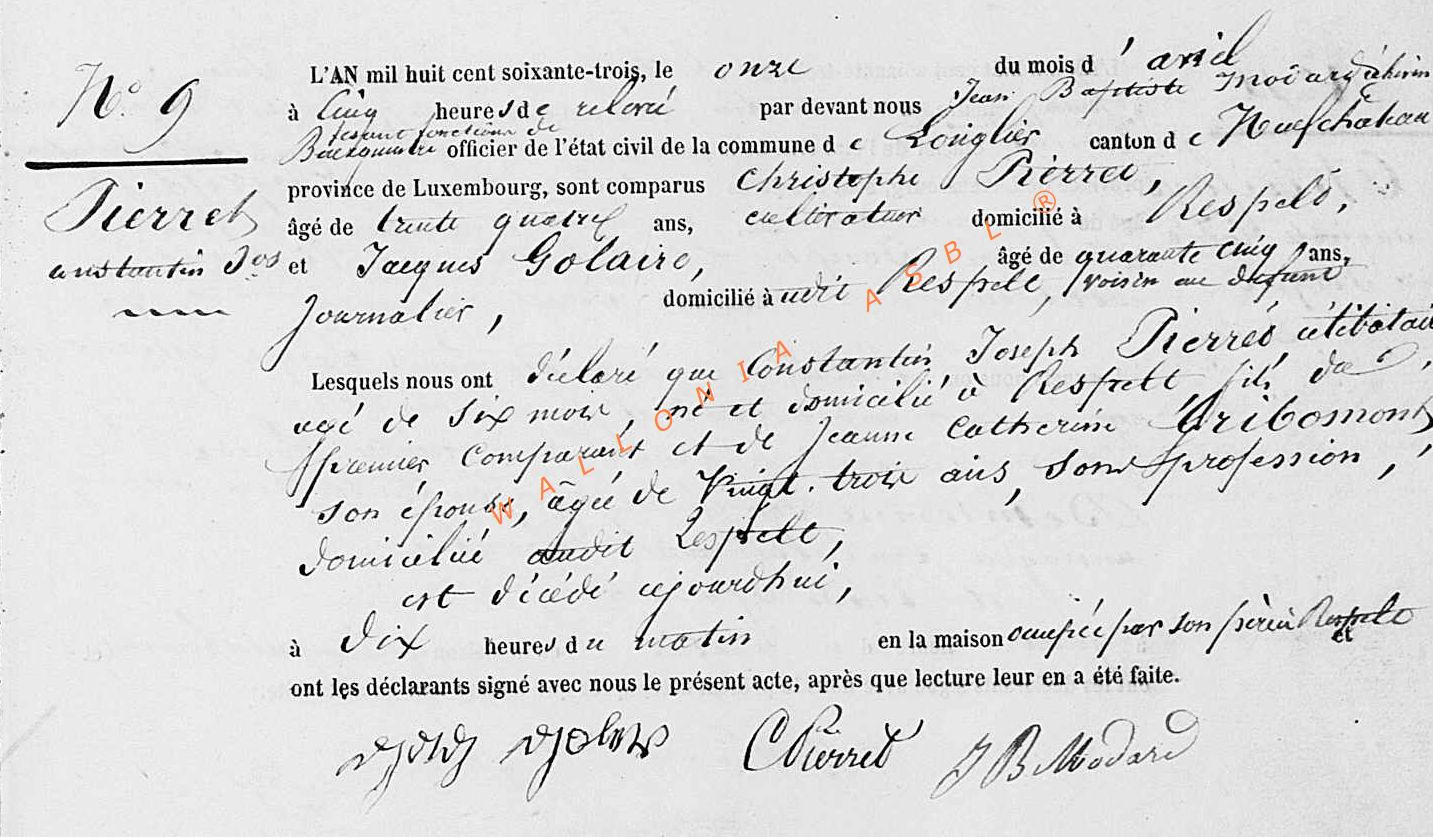 N° 9
Pierret
Constantin Jos
L'AN mil huit cent soixante-trois, le onze du mois d'avril
à Cinq heures de relevé par devant nous Jean Baptiste
fesant fonctions de
Bourgmestre officier de l'état civil de la commune de Longlier canton de Neufchâteau
province de Luxembourg, sont comparus Christophe Pierret,
âgé de trente quatre ans, cultivateur domicilié à Respelt,
et Jacques Golaire, âgé de quarante cinq ans,
Journalier, domicilié à udit Respelt, voisin au defunt
Lesquels nous ont déclaré que Constantin Joseph Pierret célibatair
agé de six mois, né et domicilié à Respelt, fils du
premier Comparant et de Jeanne Catherine Gribomont
son épouse, âgée de Vingt-trois ans, sans profession,
domiciliée audit Respelt,
est décédé ajourdhui,
à Dix heures du matin en la maison occupée par son père à Respelt et
ont les déclarants signé avec nous le présent acte, après que lecture leur en a été faite.
C Pierret J B Modard
WALLONIA ASBL ®